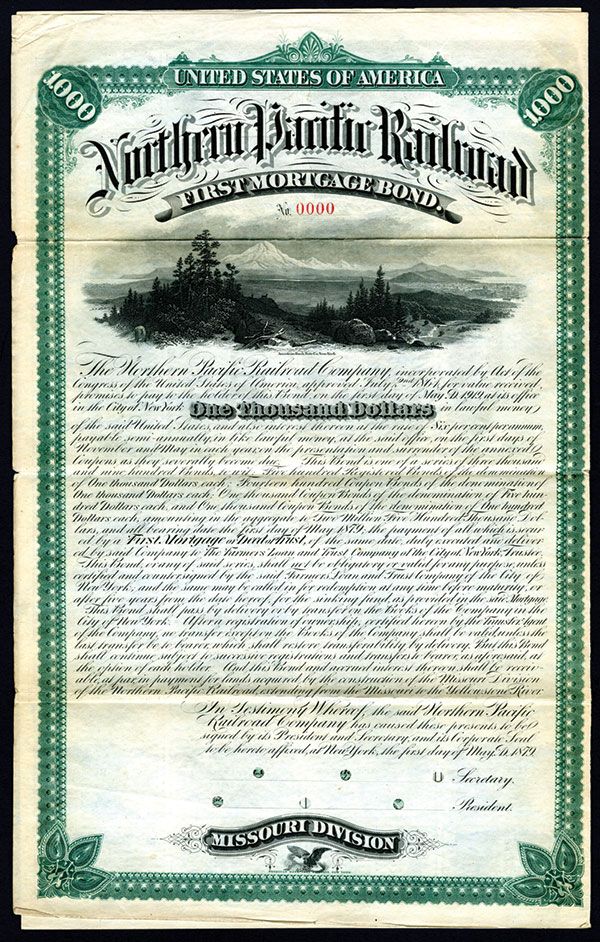 UNITED STATES OF AMERICA
1000
1000
Northern Pacific Railroad
FIRST MORTGAGE BOND.
No. 0000
The Northern Pacific Railroad Company, incorporated by Act of the
Congress of the United States of America, approved July 2nd 1864, for value received,
promises to pay to the holder of this Bond, on the first day of May A.D. 1919, at its office
in the City of New York One Thousand Dollars in lawful money
of the said United States, and also interest thereon at the rate of Six per cent per annum,
payable semi-annually, in like lawful money, at the said office, on the first days of
November and May in each year, on the presentation and surrender of the annexed
Coupons as they severally become due. This Bond is one of a series of three thousand
and nine hundred Bonds, to wit: Five hundred Registered Bonds of the denomination
of One Thousand Dollars each; Fourteen hundred Coupon Bonds of the denomination of
One Thousand Dollars each; One thousand Coupon Bonds of the denomination of Five hun-
dred Dollars each, and One thousand Coupon Bonds of the denomination of One hundred
Dollars each, amounting in the aggregate to Two Million Five Hundred Thousand Dol-
lars, and all bearing date the first day of May, 1879, the payment of all which is secur-
ed by a First Mortgage or Deed of Trust, of the same date, duly executed and deliver-
ed by said Company to The Farmers Loan and Trust Company of the City of New York, Trustee.
This Bond, or any of said series, shall not be obligatory or valid for any purpose, unless
certified and countersigned by the said Farmers Loan and Trust Company of the City of
New York, and the same may be called in for redemption at any time before maturity, or
after five years from the date hereof, for the sinking fund, as provided in said Mortgage.
This Bond shall pass by delivery or by transfer on the Books of the Company in the
City of New York. After a registration of ownership, certified hereon by the Transfer Agent
of the Company, no transfer except on the Books of the Company shall be valid, unless the
last transfer be to bearer, which shall restore transferability by delivery. But this Bond
shall continue subject to successive registrations and transfers to bearer, as aforesaid, at
the option of each holder. And this Bond and accrued interest thereon shall be receiv-
able, at par, in payment for lands acquired by the construction of the Missouri Division
of the Northern Pacific Railroad, extending from the Missouri to the Yellowstone River.
In Testimony Whereof, the said Northern Pacific
Railroad Company has caused these presents to be
signed by its President and Secretary, and its Corporate Seal
to be hereto affixed, at New York, the first day of May, A.D. 1879.
Secretary.
President.
MISSOURI DIVISION